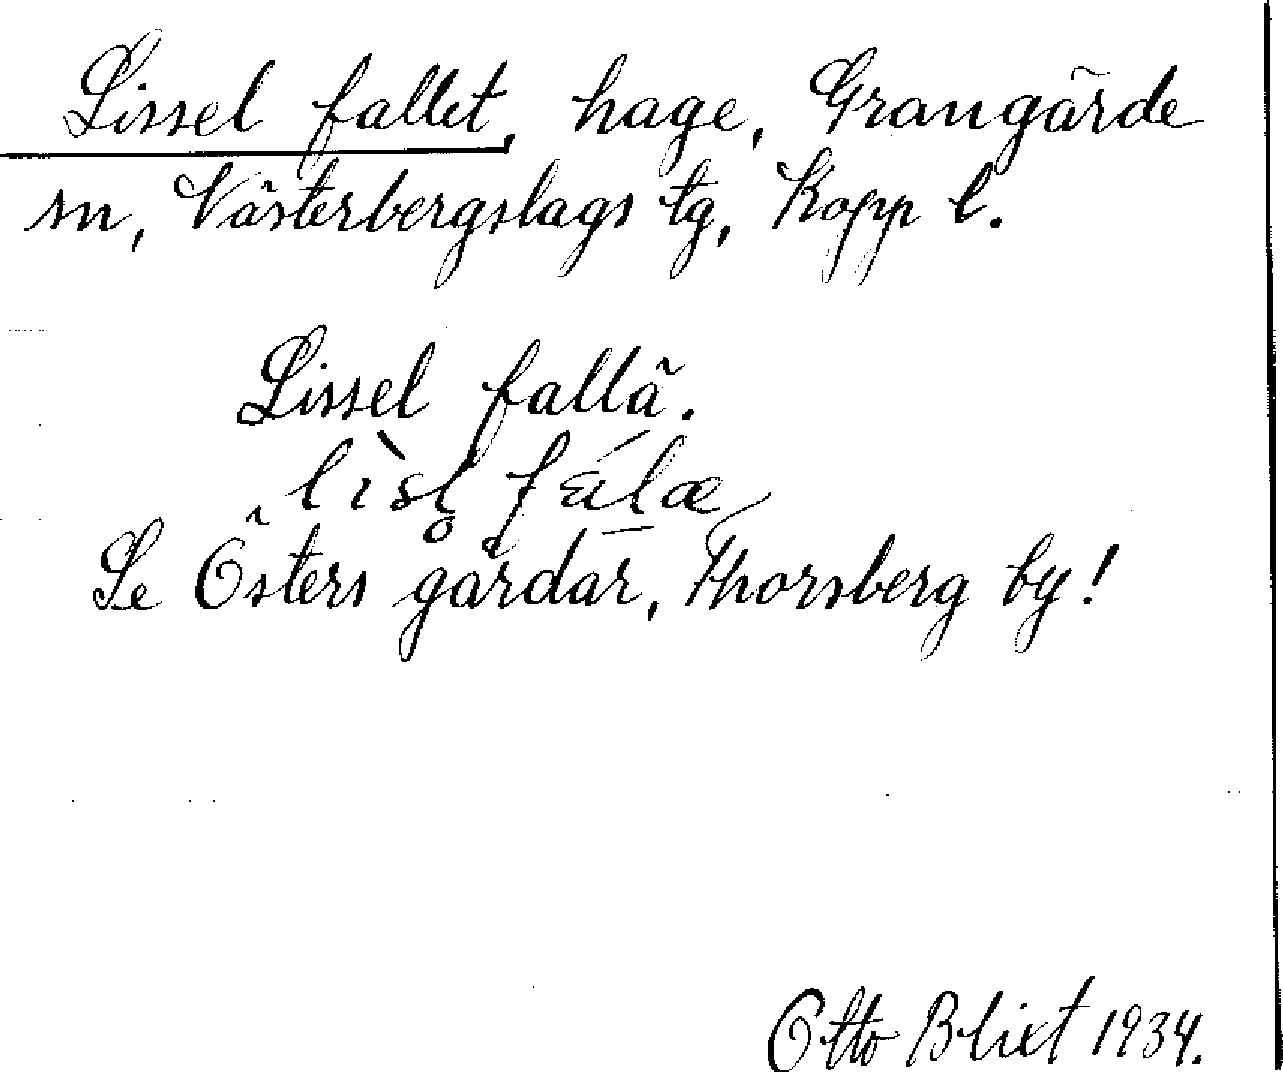 Lissel fallet, hage, Grangärde
sn, Västerbergslags tg, Kopp l.
Lissel fallä.
lìsl̥ fálæ
Se Östers gårdar, Thorsberg by!
Otto Blixt 1934.